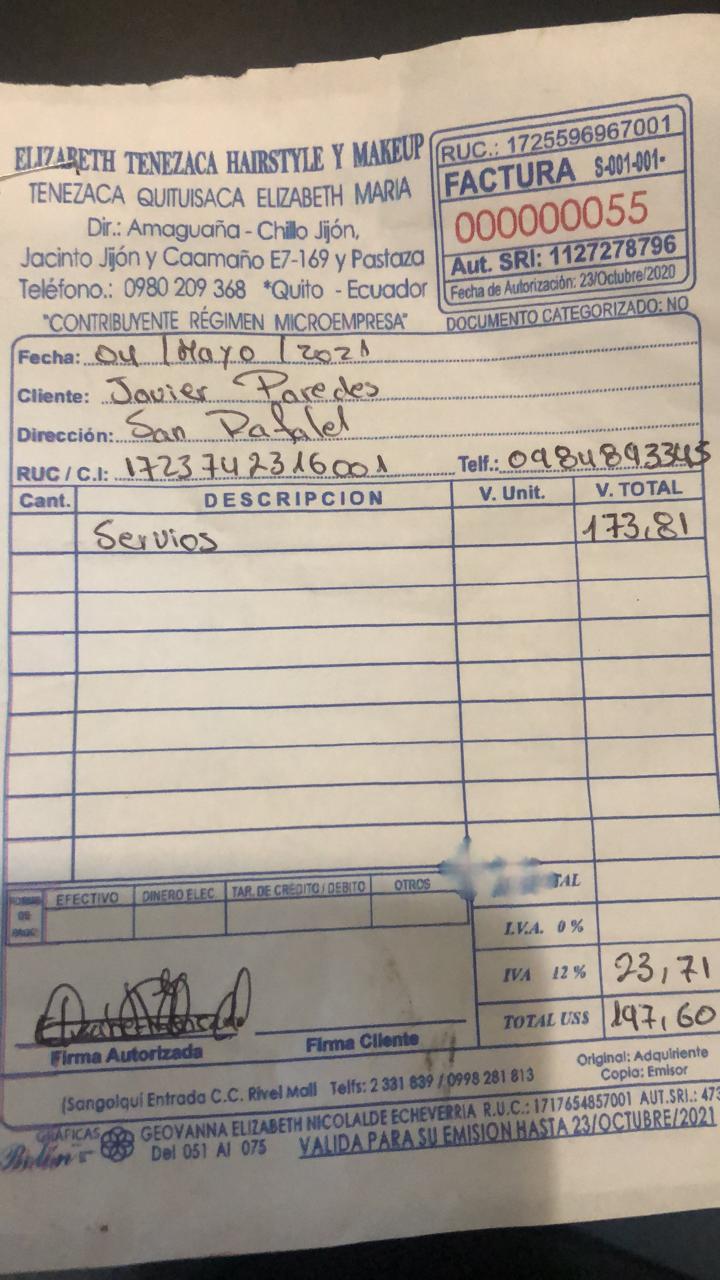 ELIZABETH TENEZACA HAIRSTYLE Y MAKEUP
TENEZACA QUITUISACA ELIZABETH MARIA
Dir.: Amaguaña - Chillo Jijón,
Jacinto Jijón y Caamaño E7-169 y Pastaza
Teléfono.: 0980 209 368 *Quito - Ecuador
"CONTRIBUYENTE RÉGIMEN MICROEMPRESA"
RUC.: 1725596967001
FACTURA S-001-001-
000000055
Aut. SRI: 1127278796
Fecha de Autorización: 23/Octubre/2020
DOCUMENTO CATEGORIZADO: NO
Fecha: 04 / Mayo / 2021
Cliente: Javier Paredes
Dirección: San Rafalel
RUC / C.I: 1723742316001 Telf.: 0984893345
Cant. DESCRIPCION V. Unit. V. TOTAL
Servios 173,81
TAL
I.V.A. 0 %
IVA 12 % 23,71
TOTAL US$ 197,60
FORMA DE PAGO EFECTIVO DINERO ELEC. TAR. DE CRÉDITO / DEBITO OTROS
Firma Autorizada Firma Cliente
Original: Adquiriente
Copia: Emisor
(Sangolquí Entrada C.C. Rivel Mall Telfs: 2 331 839 / 0998 281 813
GRÁFICAS GEOVANNA ELIZABETH NICOLALDE ECHEVERRIA R.U.C.: 1717654857001 AUT.SRI.: 473
Del 051 Al 075 VALIDA PARA SU EMISION HASTA 23/OCTUBRE/2021